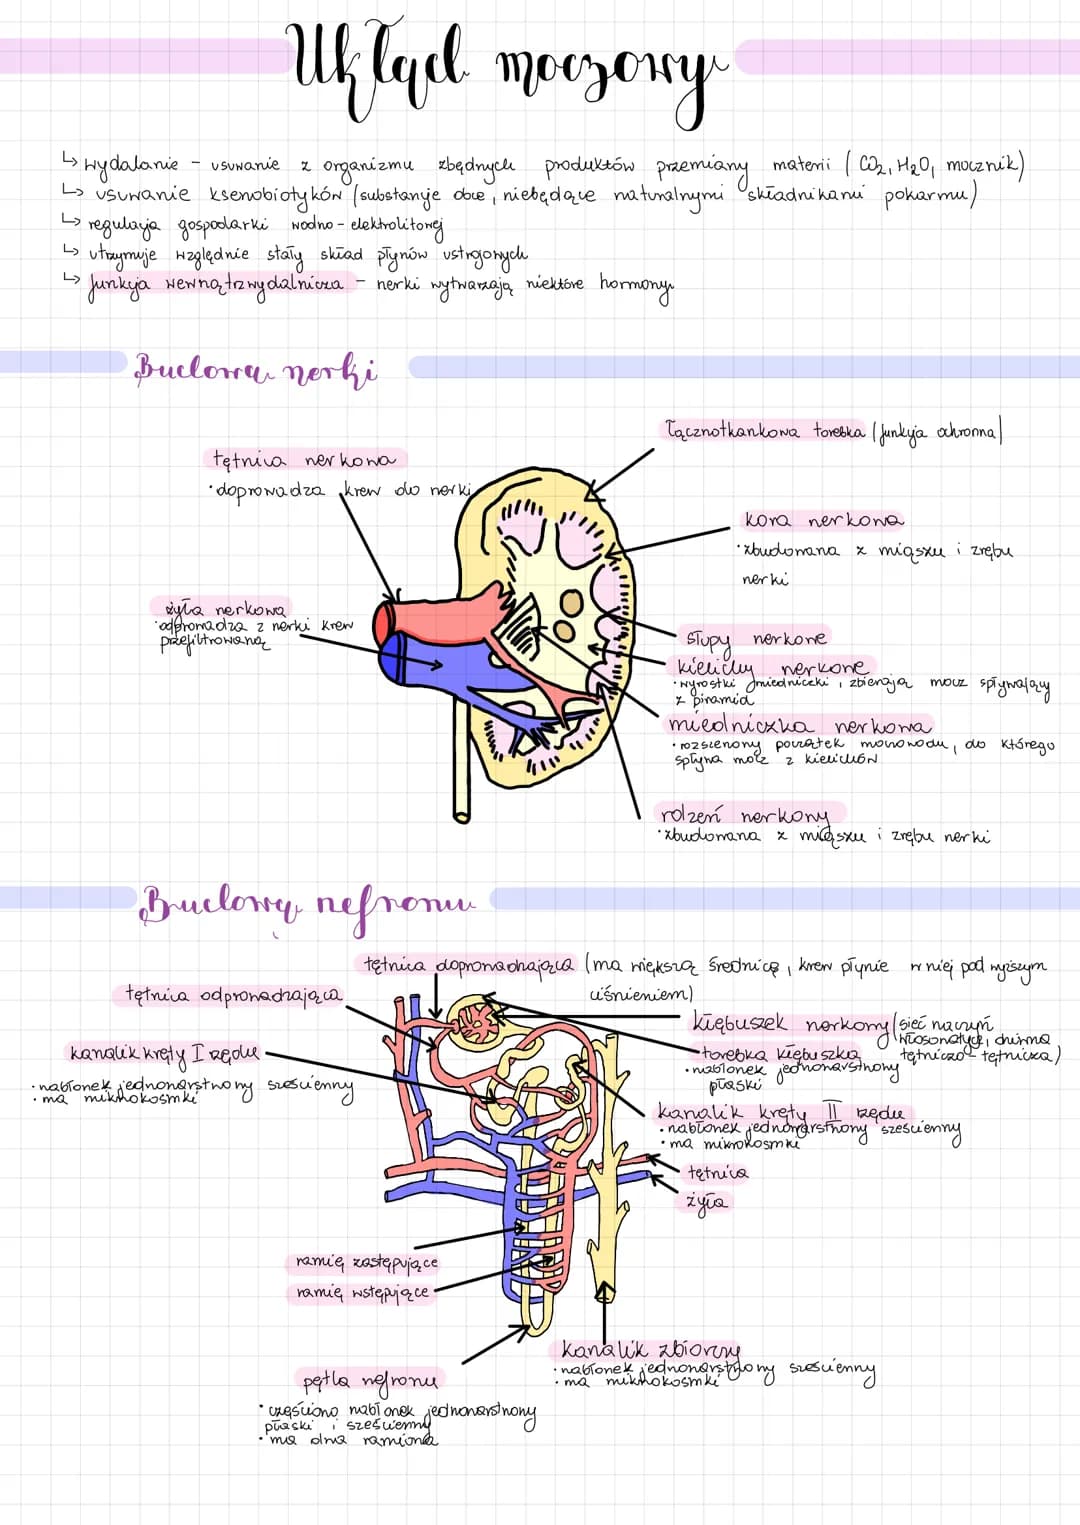 Układ moczowy
↳ wydalanie - usuwanie z organizmu zbędnych produktów przemiany materii (CO2, H2O, mocznik)
↳ usuwanie ksenobiotyków (substancje obce, niebędące naturalnymi składnikami pokarmu)
↳ regulacja gospodarki wodno-elektrolitowej
↳ utrzymuje względnie stały skład płynów ustrojowych
↳ funkcja wewnątrzwydalnicza - nerki wytwarzają niektóre hormony
Budowa nerki
łącznotkankowa torebka (funkcja ochronna)
tętnica nerkowa
·doprowadza krew do nerki
kora nerkowa
·zbudowana z miąższu i zrębu
nerki
żyła nerkowa
·odprowadza z nerki krew
przefiltrowaną
słupy nerkowe
kielichy nerkowe
·wyrostki miedniczki, zbierają mocz spływający
z piramid
miedniczka nerkowa
·rozszerzony początek moczowodu, do którego
spływa mocz z kielichów
rdzeń nerkowy
·zbudowana z miąższu i zrębu nerki
Budowa nefronu
tętnica doprowadzająca (ma większą średnicę, krew płynie w niej pod wyższym
ciśnieniem)
tętnica odprowadzająca
kłębuszek nerkowy (sieć naczyń
włosowatych, dziwna
tętniczo-tętnicza)
kanalik kręty I rzędu
·nabłonek jednowarstwowy sześcienny
·ma mikrokosmki
torebka kłębuszka
·nabłonek jednowarstwowy
płaski
kanalik kręty II rzędu
·nabłonek jednowarstwowy sześcienny
·ma mikrokosmki
tętnica
żyła
ramię zastępujące
ramię wstępujące
kanalik zbiorczy
·nabłonek jednowarstwowy sześcienny
·ma mikrokosmki
pętla nefronu
·częściowo nabłonek jednowarstwowy
płaski i sześcienny
·ma dwa ramiona